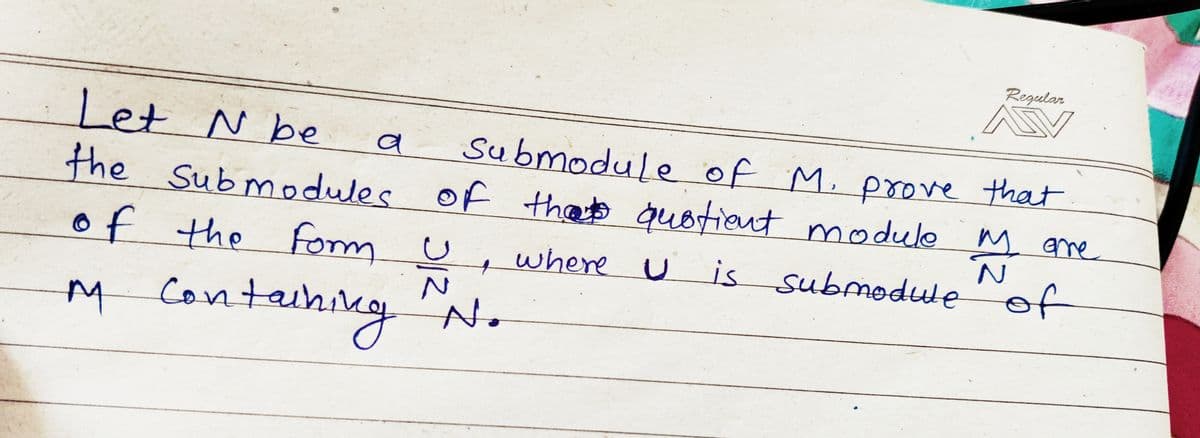 Regular
Let N be a submodule of M. prove that
the submodules of the quotient module M/N are
of the form U/N, where U is submodule of
M Containing N.